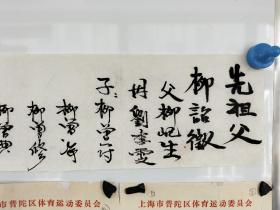 先祖父
柳詒徵
父柳屺生
母劉季雲
子：柳曾符
柳曾
柳曾
柳曾典
上海市普陀区体育运动委员会
上海市普陀区体育运动委员会